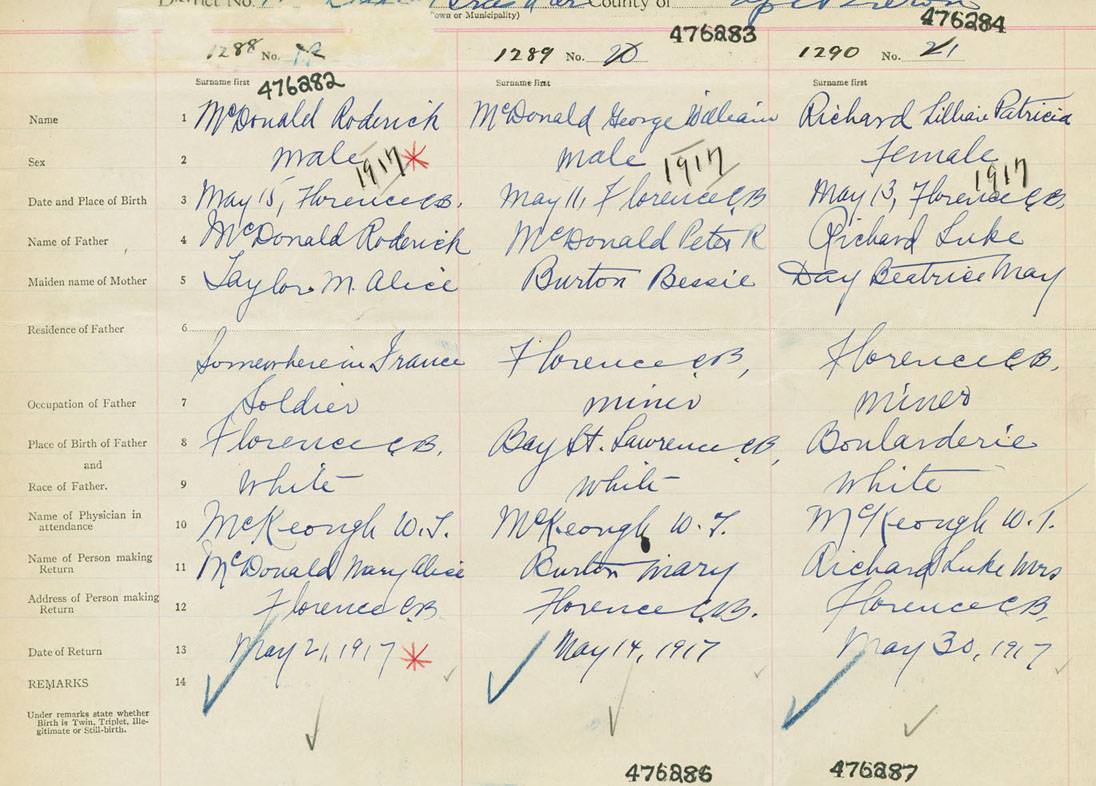 District No. County of
(Town or Municipality)
476283 476284
1288 No. 1289 No. 20 1290 No. 21
Surname first 476282 Surname first Surname first
Name 1 McDonald Roderick McDonald George William Richard Lillian Patricia
Sex 2 male male Female
1917 1917 1917
Date and Place of Birth 3 May 15, Florence C.B. May 11, Florence C.B May 13, Florence C.B.
Name of Father 4 McDonald Roderick McDonald Peter R Richard Luke
Maiden name of Mother 5 Taylor M. Alice Burton Bessie Day Beatrice May
Residence of Father 6
Somewhere in France Florence C.B, Florence C.B.
Occupation of Father 7 Soldier miner miner
Place of Birth of Father 8 Florence C.B. Bay St. Lawrence C.B, Boularderie
and
Race of Father. 9 White White White
Name of Physician in
attendance 10 McKeough W. T. McKeough W. T. McKeough W. T.
Name of Person making
Return 11 McDonald Mary Alice Burton Mary Richard Luke Mrs
Address of Person making
Return 12 Florence C.B. Florence C.B. Florence C.B,
Date of Return 13 May 21, 1917 May 14, 1917 May 30, 1917
REMARKS 14
Under remarks state whether
Birth is Twin, Triplet, Ille-
gitimate or Still-birth.
476286 476287